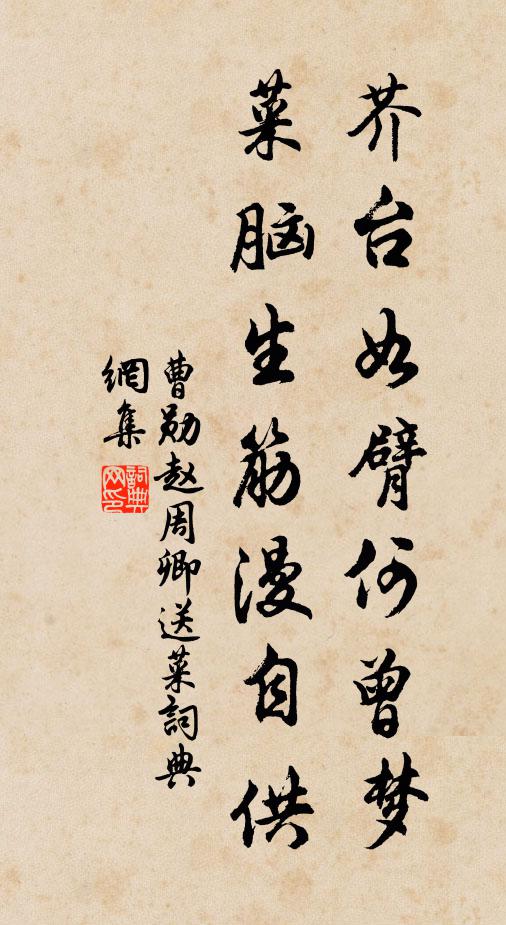 芥台如臂何曾梦
菜脑生筋漫自供
曹勋赵周卿送菜詞典
網集
詞典网印